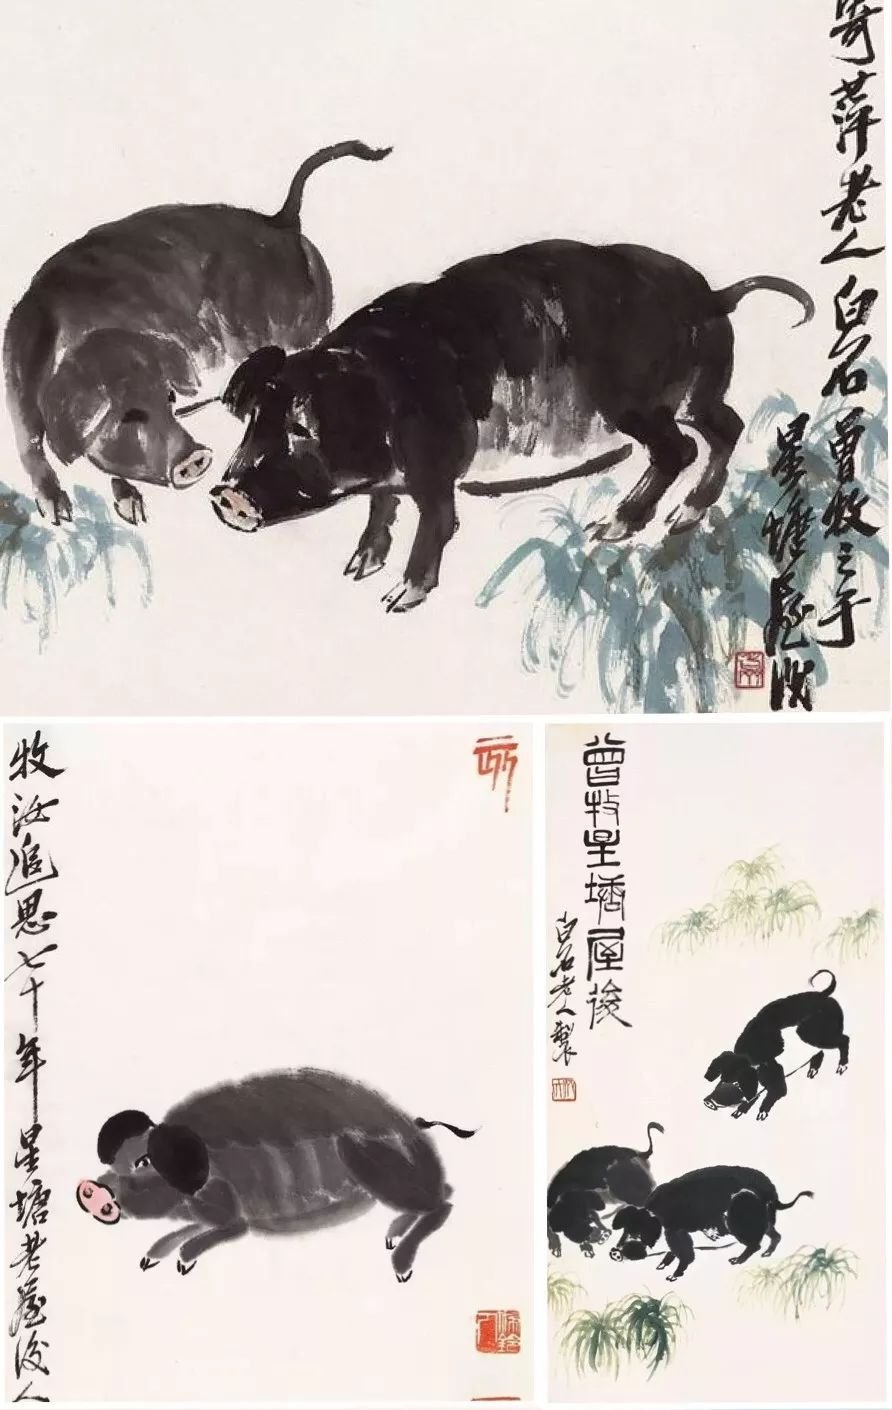 寄萍老人白石曾牧之于
星塘屋後
牧汝追思七十年星塘老屋後人
曾牧星塘屋後
白石老人製